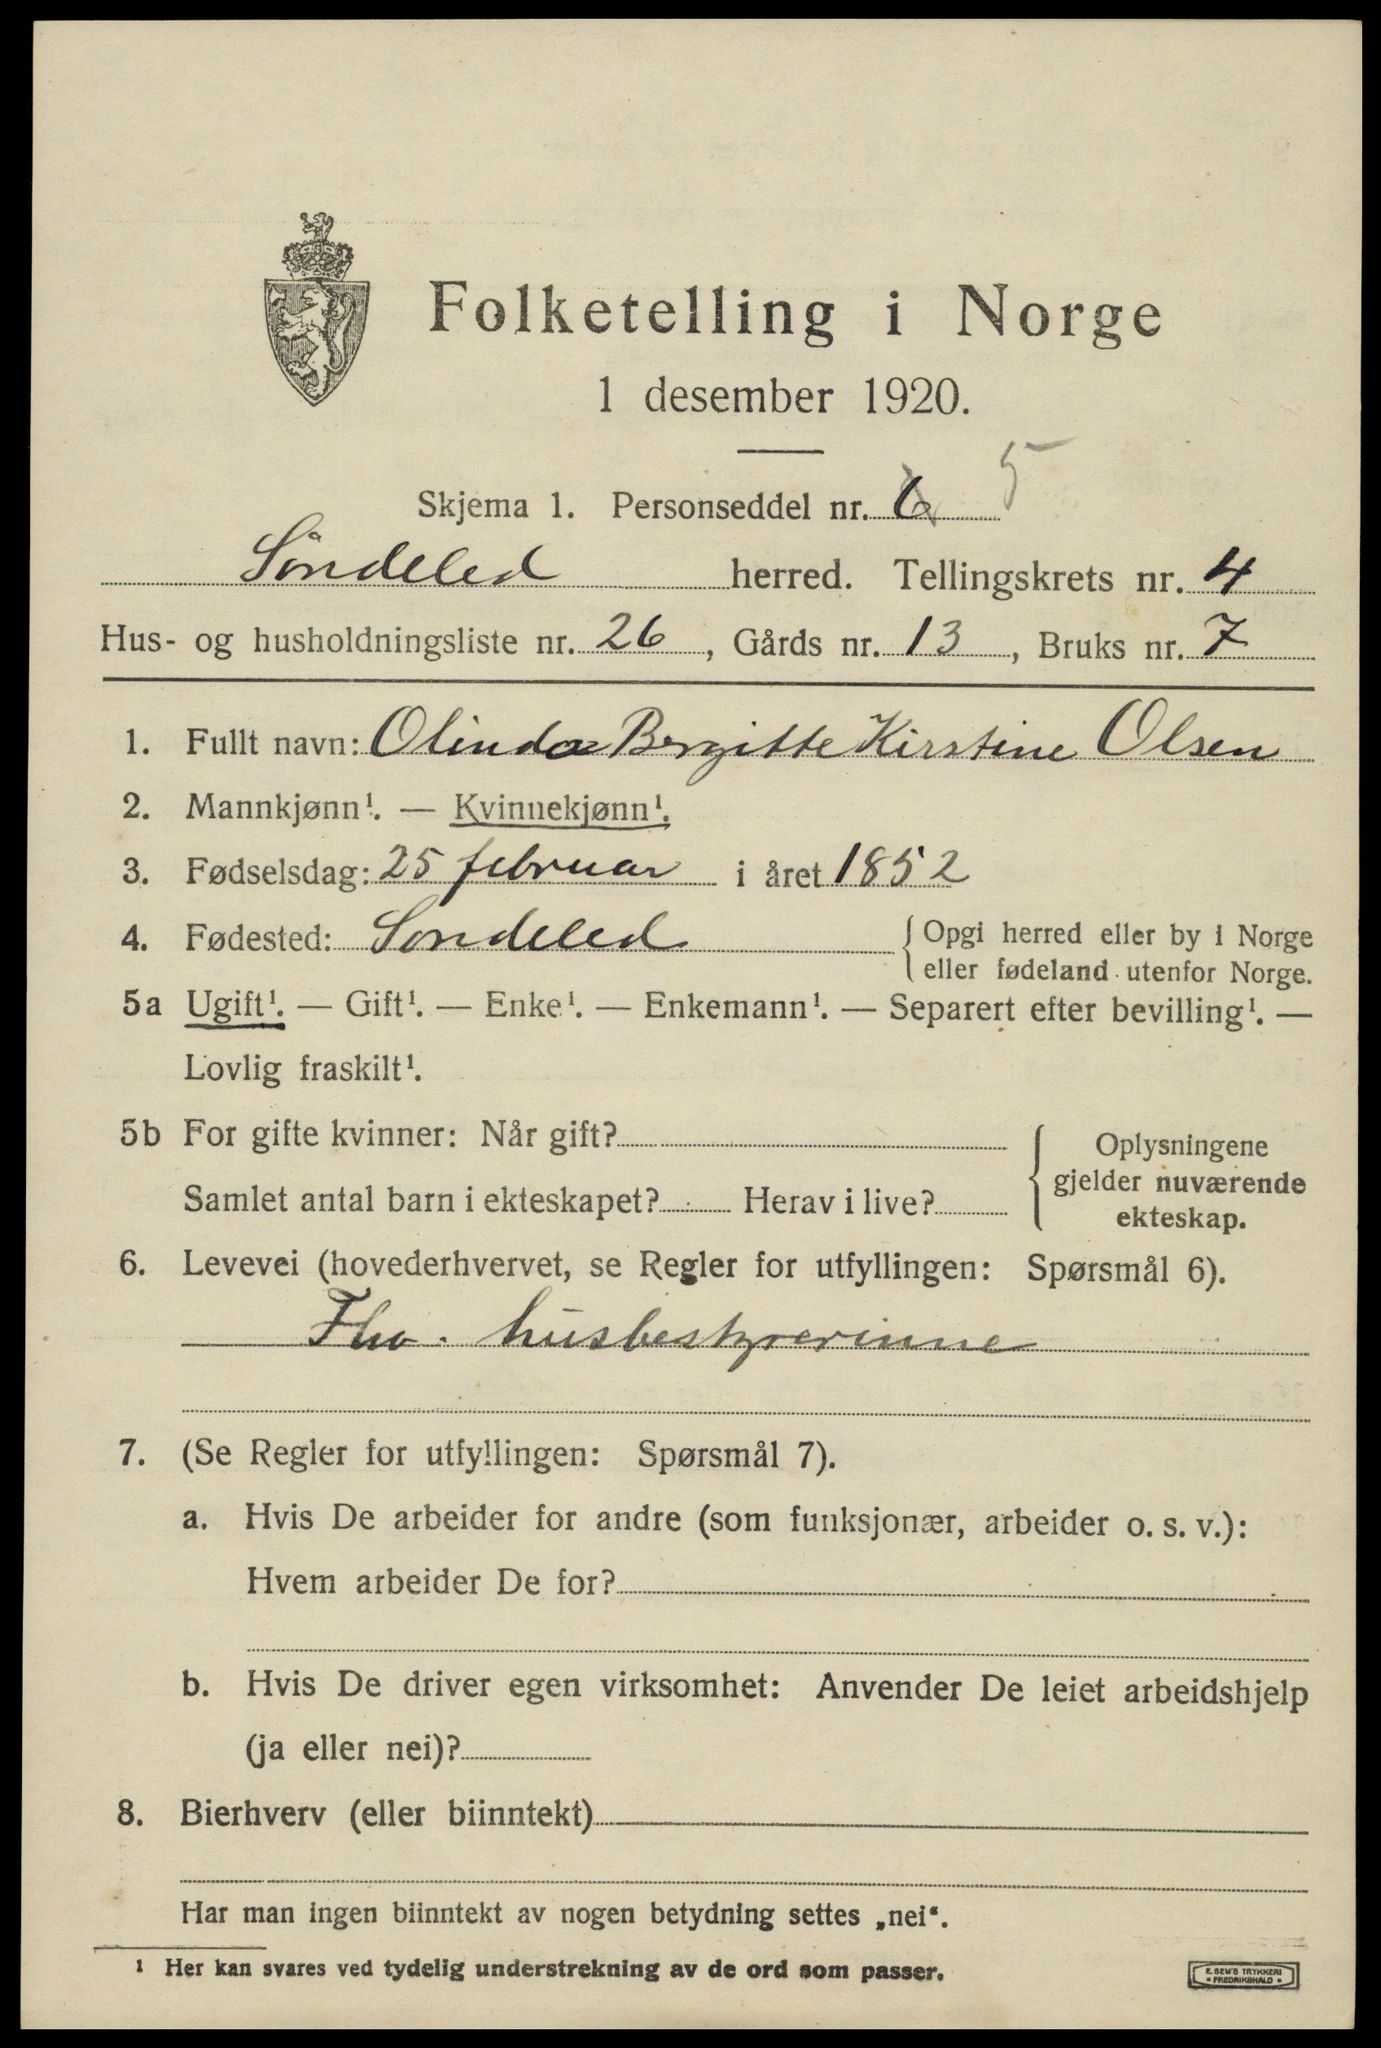 Folketelling i Norge
1 desember 1920.
Skjema 1. Personseddel nr. 6 5
Söndeled herred. Tellingskrets nr. 4
Hus- og husholdningsliste nr. 26, Gårds nr. 13, Bruks nr. 7
1. Fullt navn: Olinda Bergitte Kirstine Olsen
2. Mannkjønn¹. — Kvinnekjønn¹.
3. Fødselsdag: 25 februar i året 1852
4. Fødested: Sondeled { Opgi herred eller by i Norge
eller fødeland utenfor Norge.
5a Ugift¹. — Gift¹. — Enke¹. — Enkemann¹. — Separert efter bevilling¹. —
Lovlig fraskilt¹.
5b For gifte kvinner: Når gift?
Samlet antal barn i ekteskapet? Herav i live?
{ Oplysningene
gjelder nuværende
ekteskap.
6. Levevei (hovederhvervet, se Regler for utfyllingen: Spørsmål 6).
Fho. husbestyrerinne
7. (Se Regler for utfyllingen: Spørsmål 7).
a. Hvis De arbeider for andre (som funksjonær, arbeider o. s. v.):
Hvem arbeider De for?
b. Hvis De driver egen virksomhet: Anvender De leiet arbeidshjelp
(ja eller nei)?
8. Bierhverv (eller biinntekt)
Har man ingen biinntekt av nogen betydning settes „nei“.
¹ Her kan svares ved tydelig understrekning av de ord som passer.
E. SEM'S TRYKKERI
• FREDRIKSHALD •